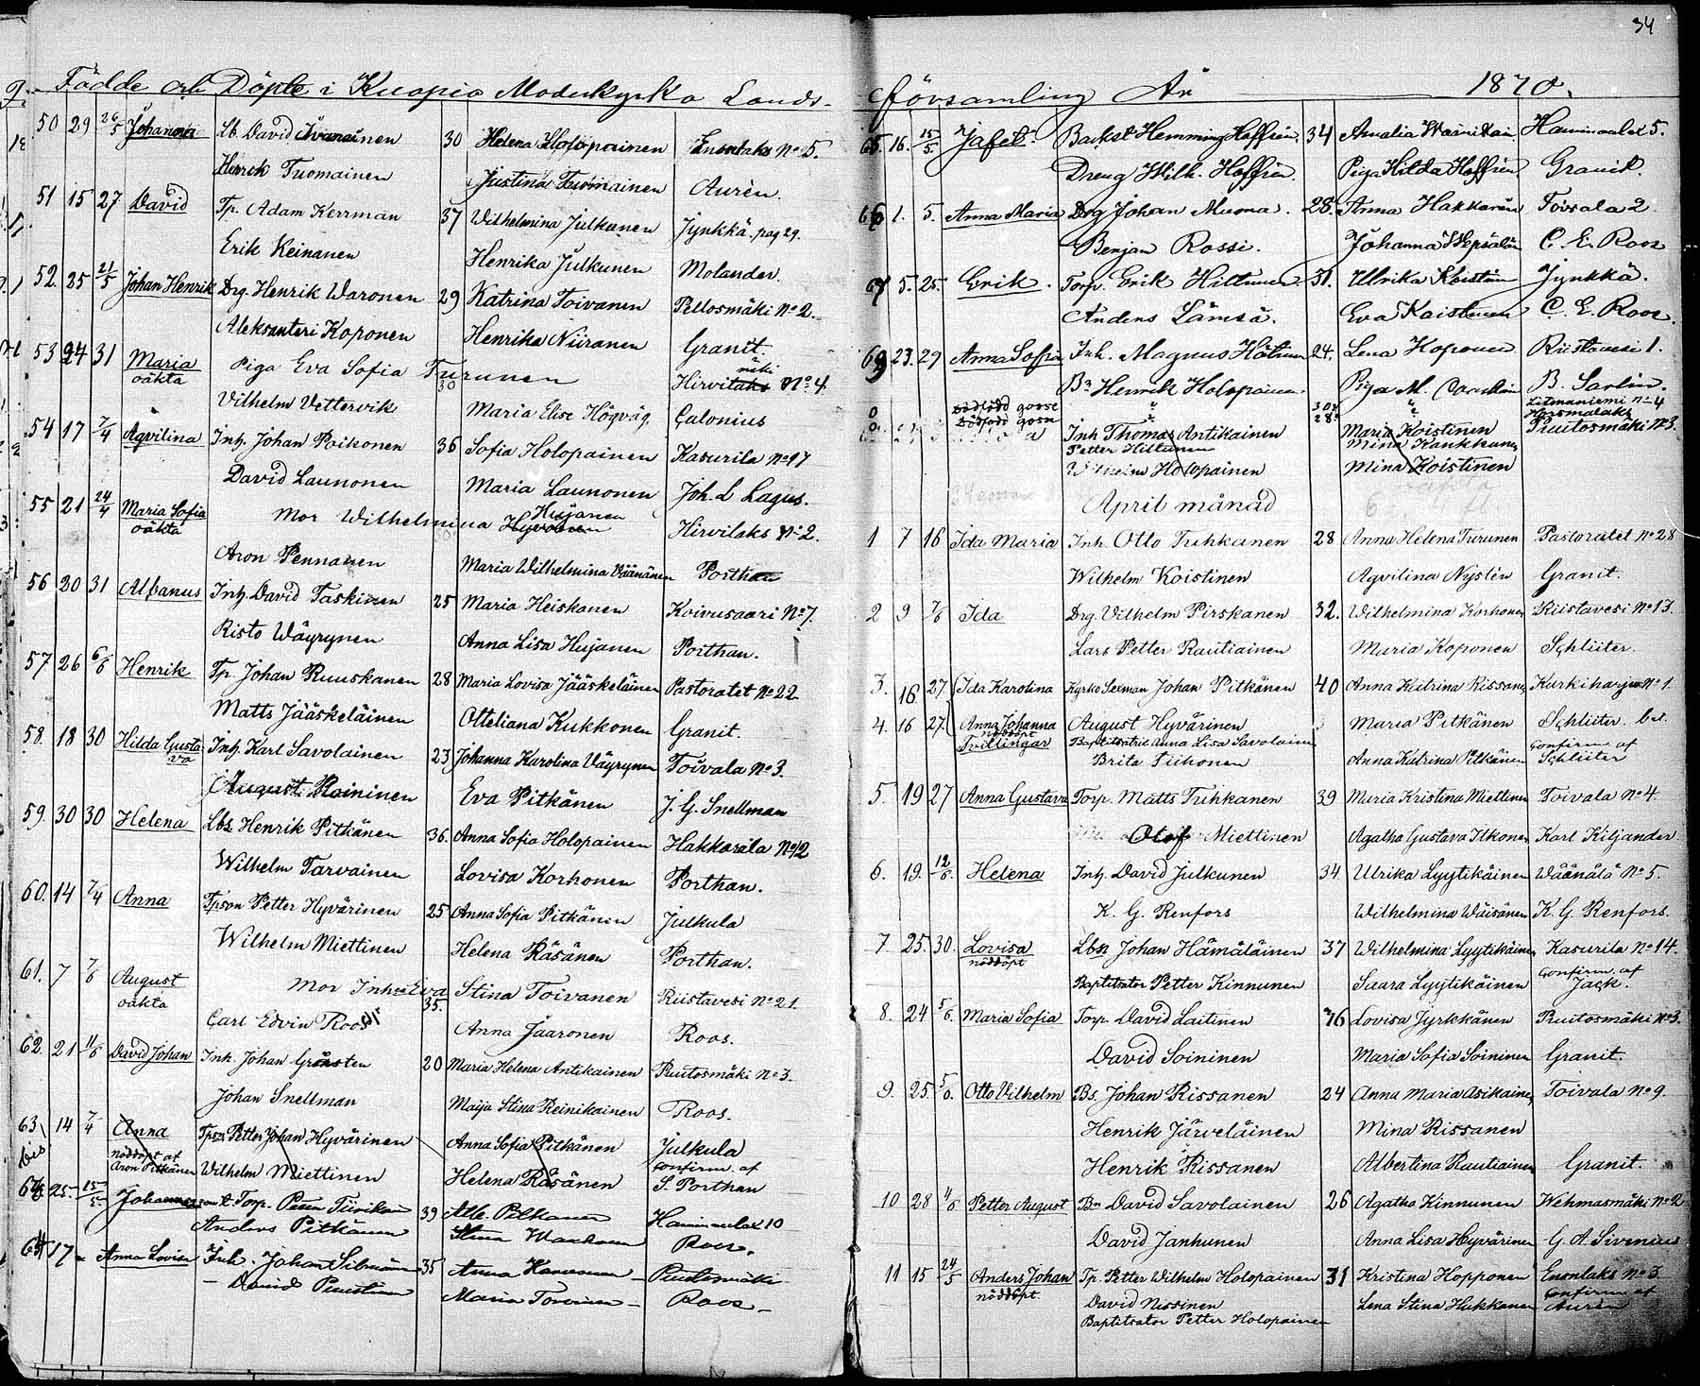 34
Födde och Döpte i Kuopio Moderkyrko Lands-
50 29 26/5 Johannes Lb. David Iivanainen 30 Helena Holopainen Enonlaks No 5.
Henrik Tuomainen Justina Tuomainen Aurén.
51 15 27 David Tp. Adam Kerrman 37 Wilhelmina Julkunen Jynkkä, pag 29.
Erik Keinanen Henrika Julkunen Molander.
52. 25 21/5 Johan Henrik Drg. Henrik Waronen 29 Katrina Toivanen Pellosmäki No 2.
Aleksanteri Koponen Henrika Niiranen Granit
53 24 31 Maria Piga Eva Sofia Turunen 30 Hirvilaks No 4
oäkta mäki
Vilhelm Vettervik Maria Elise Högväg. Calonius
54 17 7/4 Agvilina Inh. Johan Poikonen 36 Sofia Holopainen Kasurila No 17
David Launonen Maria Launonen Joh. L Lagus.
55 21 24/4 Maria Sofia Mor Wilhelmina Hujanen Hirvilaks No 2.
oäkta
Aron Pennanen Maria Wilhelmina Väänänen Porthan
56 20 31 Albanus Inh. David Taskinen 25 Maria Heiskanen Koivusaari No 7.
Risto Wäyrynen Anna Lisa Hujanen Porthan.
57. 26 6/6 Henrik Tp. Johan Ruuskanen 28 Maria Lovisa Jääskeläinen Pastoratet No 22
Matts Jääskeläinen Otteliana Kukkonen Granit.
58. 18 30 Hilda Gustava Inh. Karl Savolainen 23 Johanna Karolina Väyrynen Toivala No 3.
August Roininen Eva Pitkänen J. G. Snellman
59. 30 30 Helena Lbs Henrik Pitkänen 36. Anna Sofia Holopainen Hakkarala No 12
Wilhelm Tarvainen Lovisa Korhonen Porthan.
60. 14 7/4 Anna Tpson Petter Hyvärinen 25 Anna Sofia Pitkänen Julkula
Wilhelm Miettinen Helena Räsänen Porthan.
61. 7 7/6 August Mor Inh Eva Stina Toivanen 35. Riistavesi No 21.
oäkta
Carl Edvin Roos Anna Jaaronen Roos.
62. 21 11/6 David Johan Inh. Johan Grönsten 20 Maria Helena Antikainen Puutosmäki No 3.
Johan Snellman Maija Stina Reinikainen Roos.
63 14 7/4 Anna Tpson Petter Johan Hyvärinen Anna Sofia Pitkänen Julkula
bis nöddöpt af Aron Pitkänen Wilhelm Miettinen Helena Räsänen confirm. af S. Porthan
25 15/5 Torp. 39 Haminalax 10
Anders Pitkänen Stina Roos.
17 Anna Lovisa Inh. Johan 35 Anna Puutosmäki
David Maria Roos
församling År 1870.
65. 16. 15/5 Jafet Backst Hemming Hoffrén. 34 Amalia Haminalax 5.
Dreng Wilh. Hoffrén. Piga Hilda Hoffrén Granit.
66 1. 5. Anna Maria Drg Johan Muona. 28. Anna Hakkarain Toivala 2
Benjam Rossi. Johanna C. E. Roos
67 5. 25. Erik. Torp. Erik Hiltunen 31. Ulrika Jynkkä.
Anders Lämsä. Eva Koistinen C. E. Roos.
69 23. 29 Anna Sofia Inh. Magnus 24. Lena Koponen Riistavesi 1.
Bn Henrik Holopainen Piga M. B. Sarlin.
dödfödd gosse 30 Litmaniemi No 4
dödfödd gosse 28 Harsmalaks
Inh Thomas Antikainen Maria Koistinen Puutosmäki No 3.
Petter Hiltunen Miina Kankkunen
Wilhelm Holopainen Mina Koistinen
April månad
1 7 16 Ida Maria Inh. Otto Tuhkanen 28 Anna Helena Turunen Pastoratet No 28
Wilhelm Koistinen Agvilina Nystén Granit.
2 9 7/6 Ida Drg. Vilhelm Pirskanen 32. Wilhelmina Korhonen Riistavesi No 13.
Lars Petter Rautiainen Maria Koponen Schlüter.
3. 16 27. Ida Karolina Kyrko Sexman Johan Pitkänen 40 Anna Katrina Rissanen Kurkiharju No 1.
4. 16 27. Anna Johanna August Hyvärinen Maria Pitkänen Schlüter.
nöddöpt
Tvillingar Baptisatris Anna Lisa Savolainen Confirm af
Brita Piikonen Anna Katrina Pitkänen Schlüter
5. 19 27 Anna Gustava Torp. Matts Tuhkanen 39 Maria Kristina Miettinen Toivala No 4.
Olof Miettinen Agatha Gustava Itkonen Karl Kiljander
6. 19. 12/6. Helena Inh. David Julkunen 34. Ulrika Lyytikäinen Wäänälä No 5.
K. G. Renfors Wilhelmina Wäisänen K. G. Renfors.
7. 25. 30. Lovisa Lbsn Johan Hämäläinen 37 Wilhelmina Lyytikäinen Kasurila No 14.
nöddöpt Confirm. af
Baptisator Petter Kinnunen Saara Lyytikäinen Jack.
8. 24 5/6. Maria Sofia Torp. David Laitinen 46 Lovisa Jyrkkänen Puutosmäki No 3.
David Soininen Maria Sofia Soininen Granit.
9. 25. 5/6. Otto Vilhelm Bs. Johan Rissanen 24 Anna Maria Asikainen Toivala No 9.
Henrik Järveläinen Mina Rissanen
Henrik Rissanen Albertina Rautiainen Granit.
10 28 4/6 Petter August Bn David Savolainen 26 Agatha Kinnunen Wehmasmäki No 2
David Janhunen Anna Lisa Hyvärinen G. A. Sivenius
11 15 24/5 Anders Johan Tp. Petter Wilhelm Holopainen 31 Kristina Hopponen Enonlaks No 3.
nöddöpt. David Nissinen Lena Stina Hukkanen confirm af Aurén
Baptisator Petter Holopainen